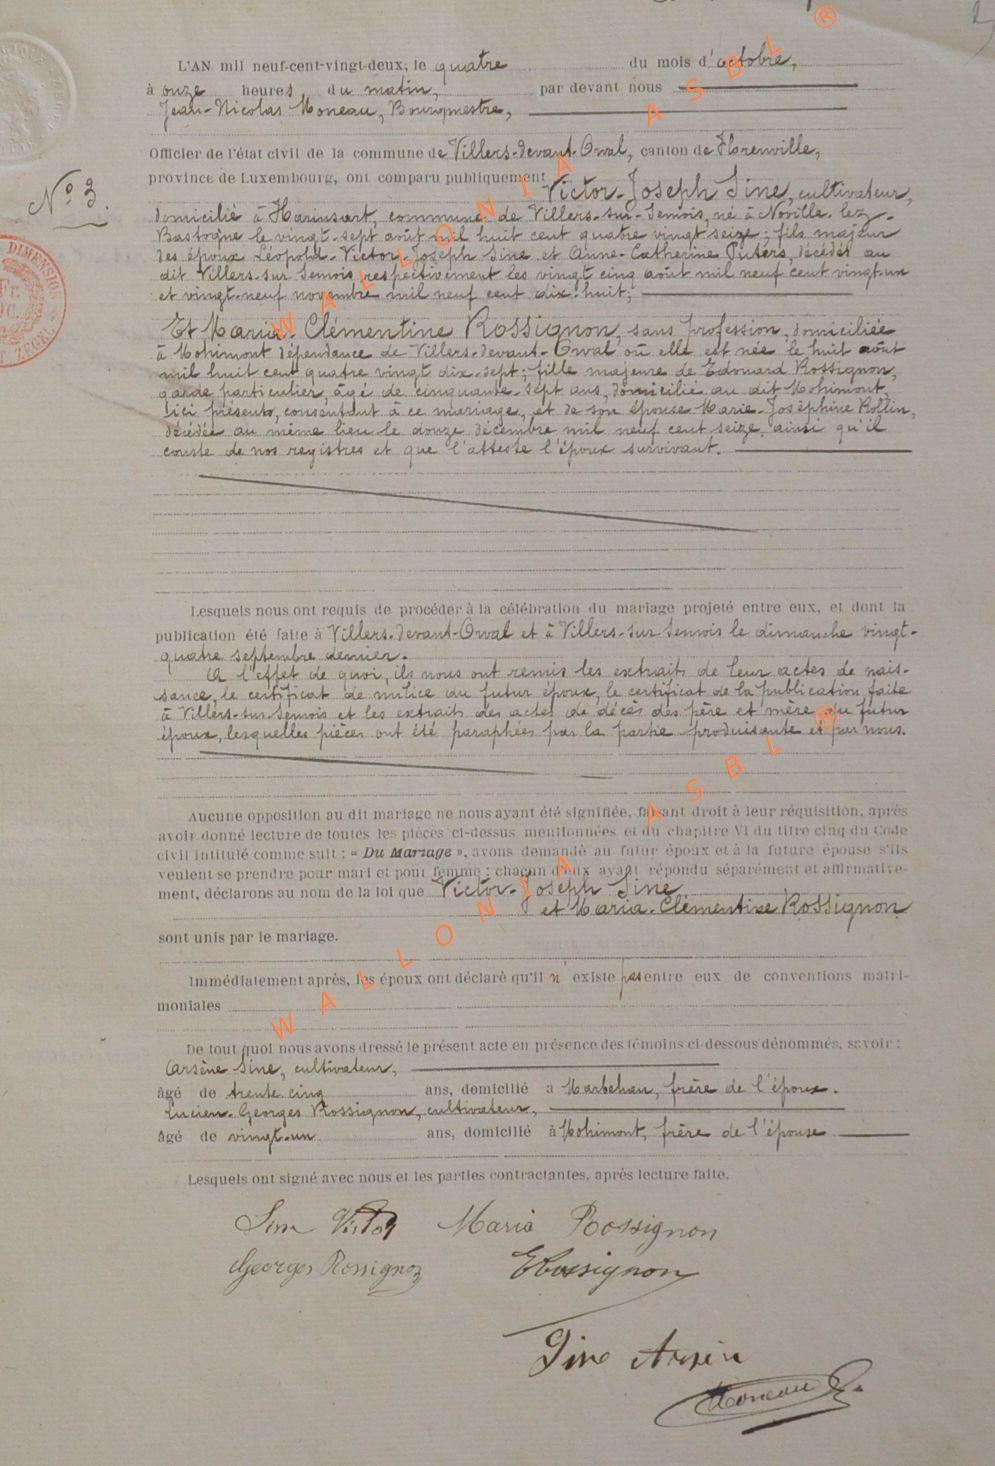 L'AN mil neuf-cent-vingt-deux, le quatre du mois d'octobre,
à onze heures du matin, par devant nous
Jean-Nicolas Moneau, Bourgmestre,
Officier de l'état civil de la commune de Villers-devant-Orval, canton de Florenville,
province de Luxembourg, ont comparu publiquement Victor-Joseph Sine, cultivateur,
N° 3.
domicilié à Harinsart, commune de Villers-sur-Semois, né à Noville-lez-
Bastogne le vingt-sept août mil huit cent quatre vingt seize; fils majeur
des époux Léopold-Victor-Joseph Sine et Anne-Catherine Puters, décédés au
dit Villers-sur Semois respectivement les vingt cinq août mil neuf cent vingt-un
et vingt-neuf novembre mil neuf cent dix-huit;
Et Maria-Clémentine Rossignon, sans profession, domiciliée
à Mohimont dépendance de Villers-devant-Orval où elle est née le huit août
mil huit cent quatre vingt dix-sept; fille majeure de Edouard Rossignon,
garde particulier, âgé de cinquante-sept ans, domicilié au dit Mohimont,
ici présent, consentant à ce mariage, et de son épouse Marie-Joséphine Rollin,
décédée au même lieu le douze décembre mil neuf cent seize, ainsi qu'il
conste de nos registres et que l'atteste l'époux survivant.
Lesquels nous ont requis de procéder à la célébration du mariage projeté entre eux, et dont la
publication été faite à Villers-devant-Orval et à Villers-sur Semois le dimanche vingt-
quatre septembre dernier.
A l'effet de quoi, ils nous ont remis les extraits de leur actes de nais-
sance, le certificat de milice du futur époux, le certificat de la publication faite
à Villers-sur-Semois et les extraits des actes de décès des père et mère du futur
époux, lesquelles pièces ont été paraphées par la partie produisante et par nous.
Aucune opposition au dit mariage ne nous ayant été signifiée, faisant droit à leur réquisition, après
avoir donné lecture de toutes les pièces ci-dessus mentionnées et du chapitre VI du titre cinq du Code
civil intitulé comme suit : « Du Mariage », avons demandé au futur époux et à la future épouse s'ils
veulent se prendre pour mari et pour femme ; chacun d'eux ayant répondu séparément et affirmative-
ment, déclarons au nom de la loi que Victor-Joseph Sine
et Maria-Clémentine Rossignon
sont unis par le mariage.
Immédiatement après, les époux ont déclaré qu'il n'existe pas entre eux de conventions matri-
moniales
De tout quoi nous avons dressé le présent acte en présence des témoins ci-dessous dénommés, savoir :
Arsène Sine, cultivateur,
âgé de trente cinq ans, domicilié a Marbehan, frère de l'époux.
Lucien-Georges Rossignon, cultivateur,
âgé de vingt-un ans, domicilié à Mohimont, frère de l'épouse
Lesquels ont signé avec nous et les parties contractantes, après lecture faite.
Sine Victor Maria Rossignon
Georges Rossignon E Rossignon
Sine Arsène
Moneau
WALLONIA ASBL ®
WALLONIA ASBL ®